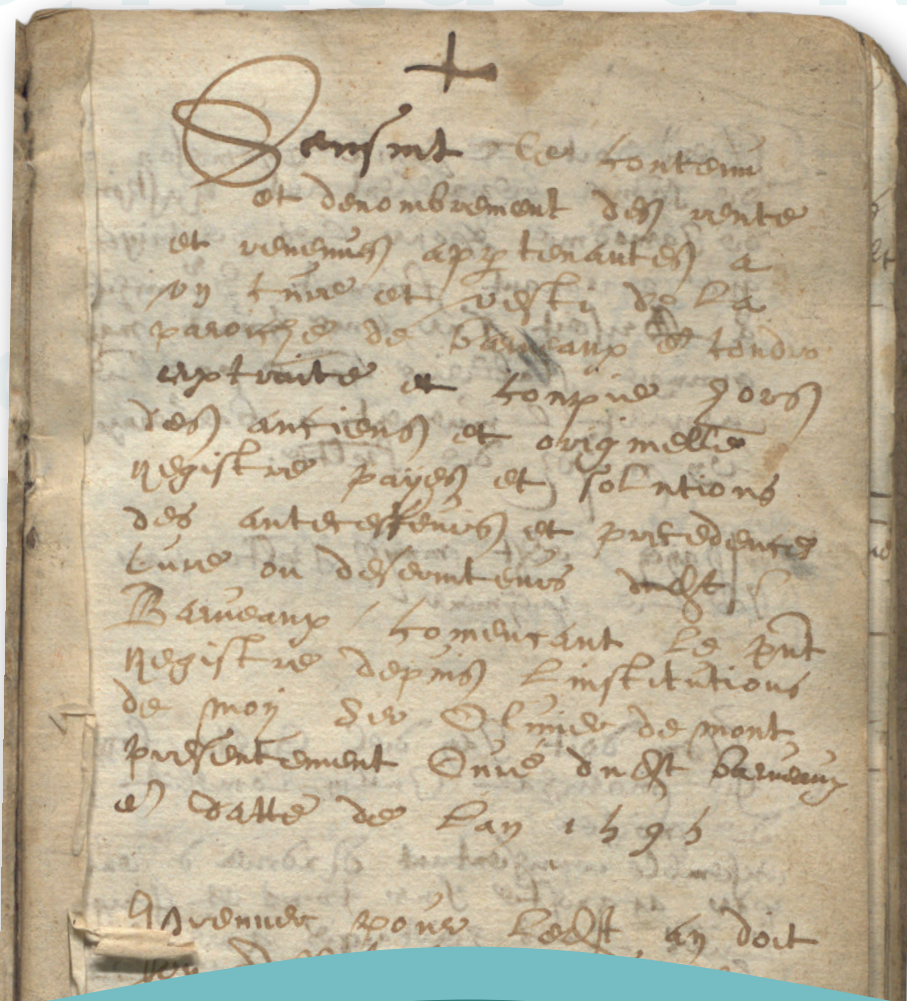 Sensuit Le contenu
et denombrement des rente
et revenues app̱tenantes a
un cure et vesti de la
paroiche de barveaux et condro
extraite et coupie hors
des anciens et originelle
Registre payes et solutions
des antecesseurs et precedences
Cure ou deserviteurs dudt
Barveaux / comencant le pnt
Registre depuis Linstitutions
de moy Sir Olivier de mont
presentement Curé dudt barveaux
datte de Lan 1595
pour Ledt an doit